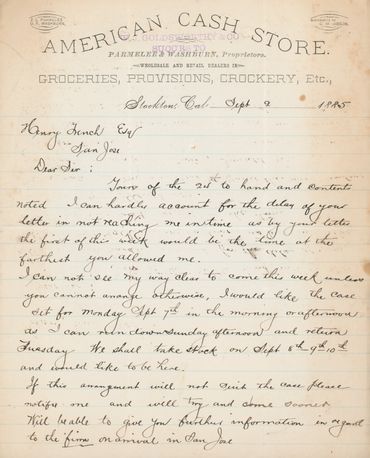 AMERICAN CASH STORE.
GOLDSWORTHY & CO
SUCCRS TO
PARMELEE & WASHBURN, Proprietors.
WHOLESALE AND RETAIL DEALERS IN
GROCERIES, PROVISIONS, CROCKERY, Etc.,
Stockton, Cal Sept 2 1885
Henry French Esq
San Jose
Dear Sir:
Yours of the 24th to hand and contents
noted I can hardly account for the delay of your
letter in not reaching me in time as by your letter
the first of this week would be the time at the
farthest you allowed me.
I can not see my way clear to come this week unless
you cannot arrange otherwise, I would like the case
set for Monday Spt 7th in the morning or afternoon
as I can run down Sunday afternoon and return
Tuesday We shall take stock on Sept 8th 9th 10th
and would like to be here.
If this arrangment will not suit the case please
notifie me and will try and come sooner
Will be able to give you further information in regard
to the firm on arrival in San Jose